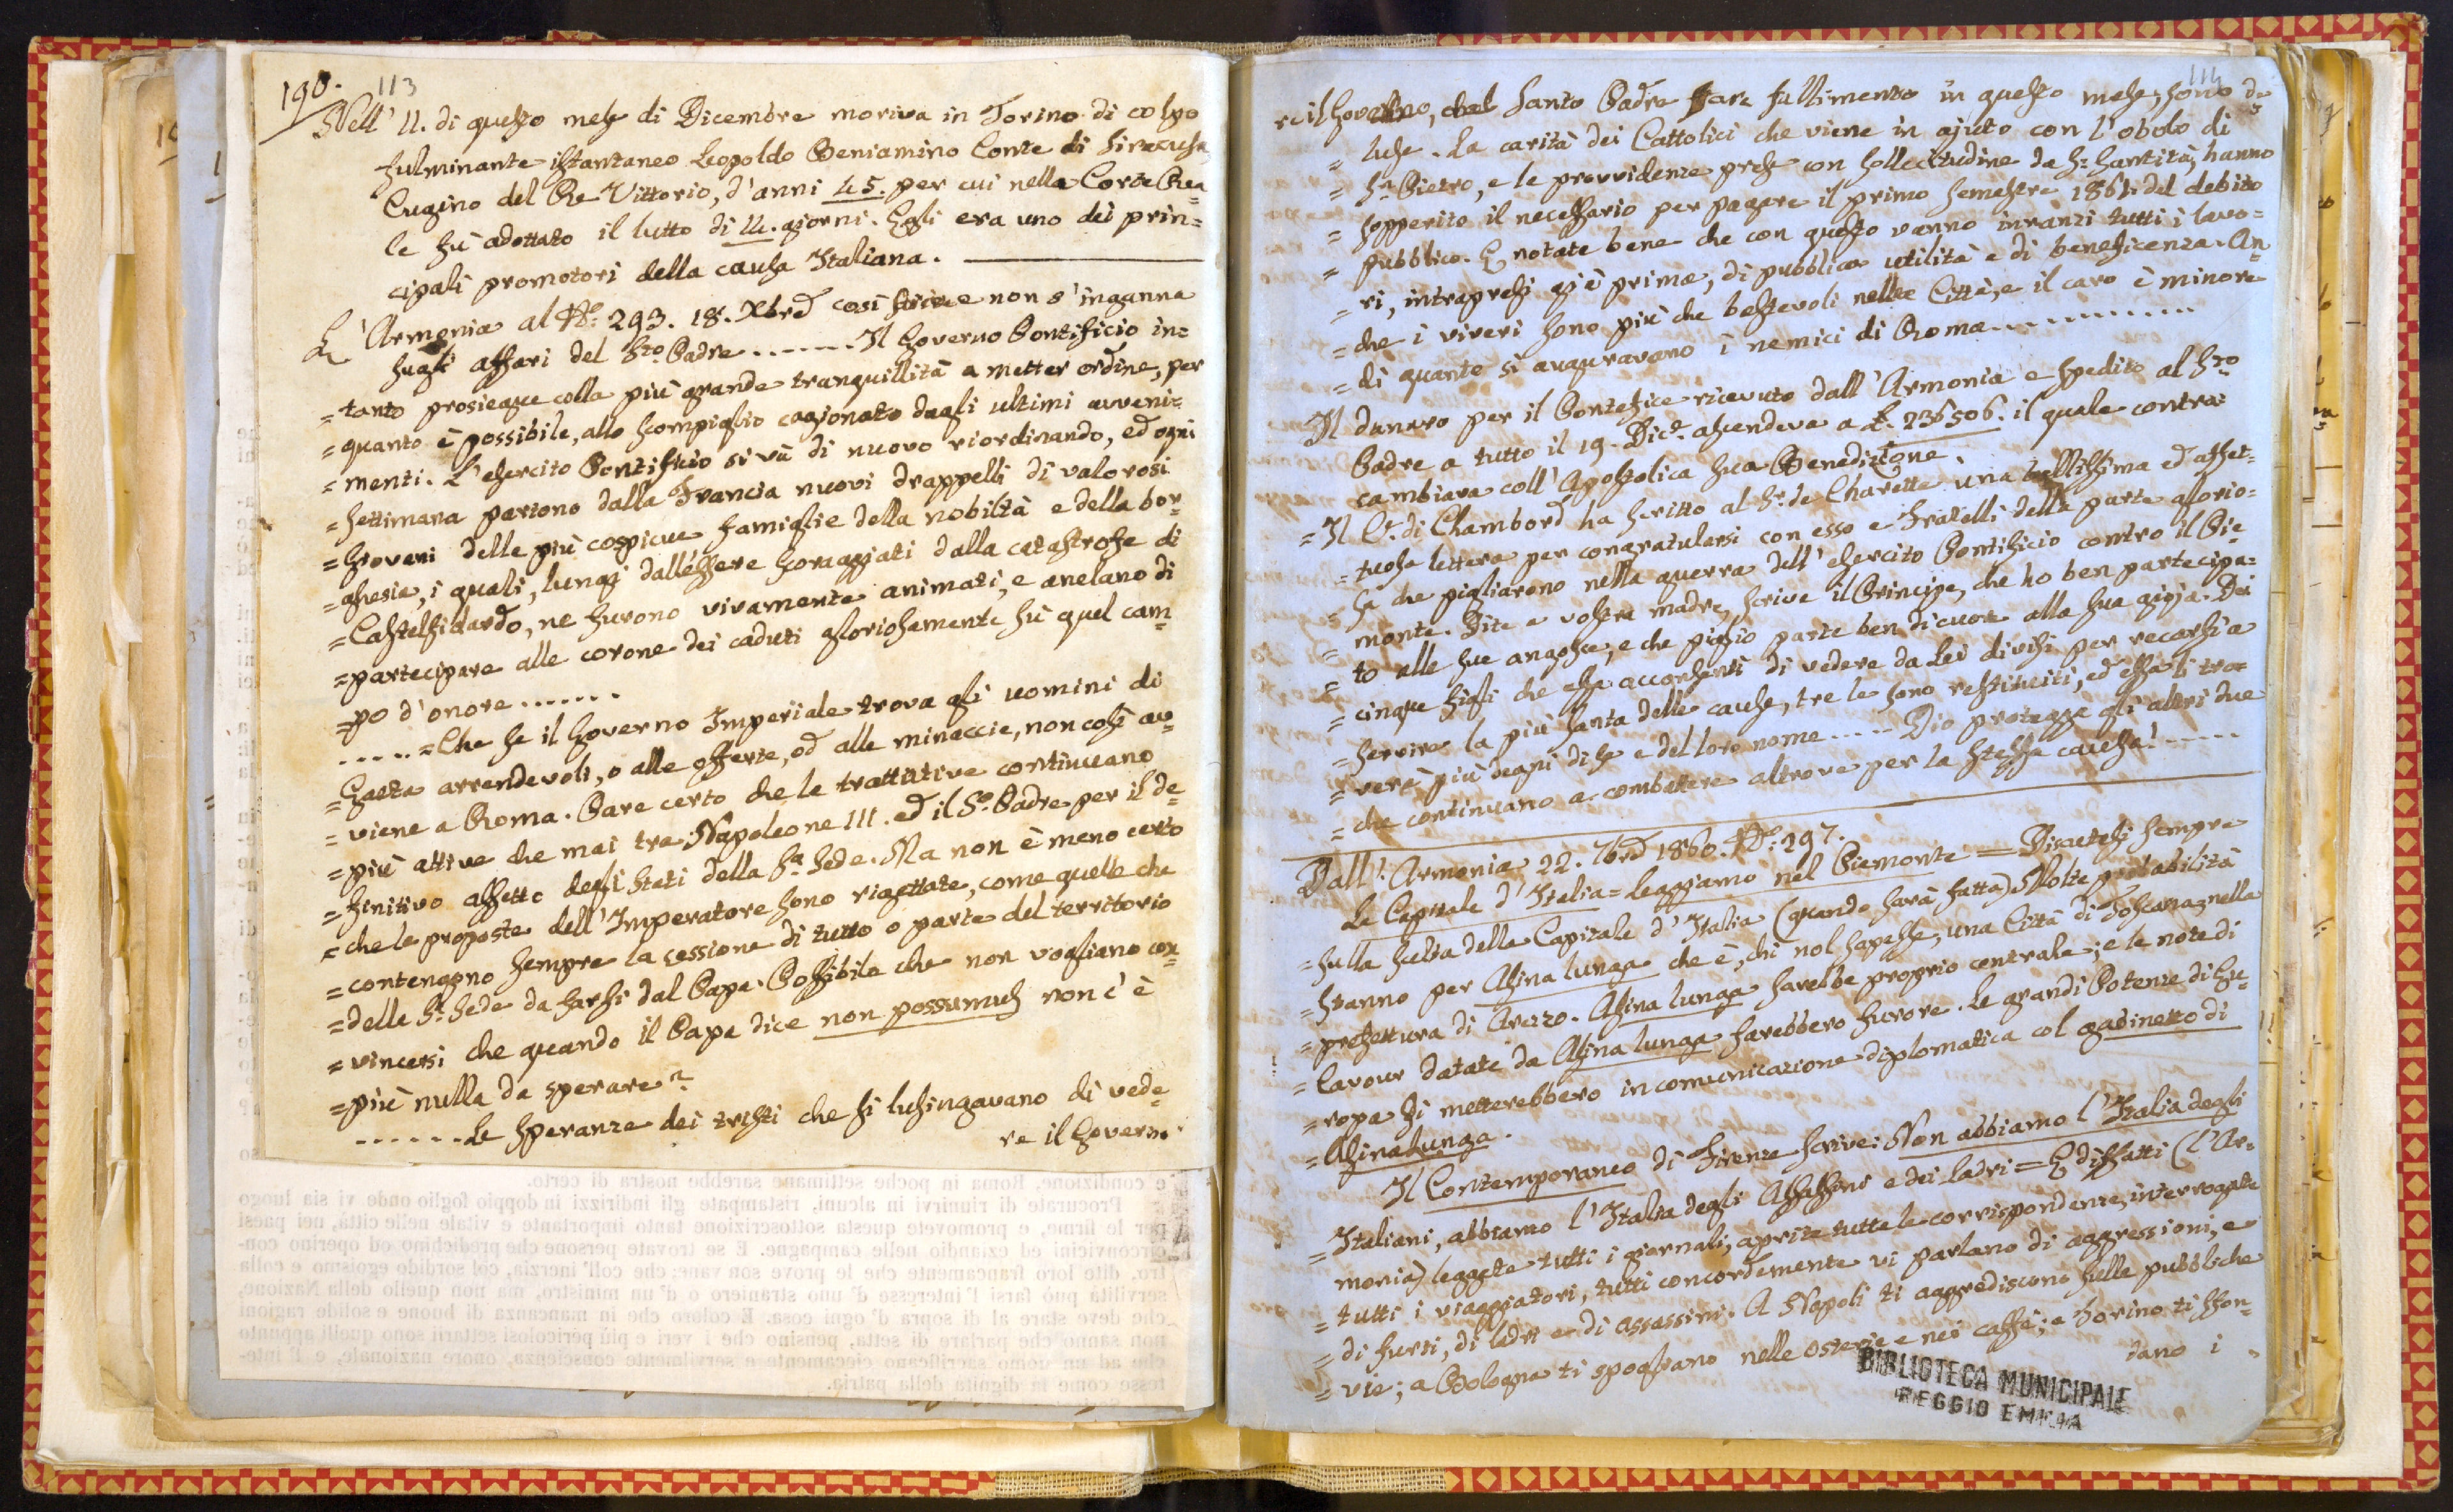 190. 113
Nell' 11. di questo mese di Dicembre moriva in Torino di colpo
fulminante istantaneo Leopoldo Beniamino Conte di Siracusa
Cugino del Re Vittorio, d'anni 45. per cui nella Corte Rea=
le fù adottato il lutto di 14. giorni. Egli era uno dei prin=
cipali promotori della causa Italiana.
L'Armonia al No. 293. 18. Xbre così scrive e non s'inganna
sugli affari del Sto. Padre ....... Il Governo Pontificio in=
=tanto prosiegue colla più grande tranquillità a metter ordine, per
=quanto è possibile, allo scompiglio cagionato dagli ultimi avveni=
=menti. L'esercito Pontificio si và di nuovo riordinando, ed ogni
=settimana partono dalla Francia nuovi drappelli di valorosi
=giovani delle più cospicue famiglie della nobiltà e della bor=
=ghesia, i quali, lungi dall'essere scoraggiati dalla catastrofe di
=Castelfidardo, ne furono vivamente animati, e anelano di
=partecipare alle corone dei caduti gloriosamente sù quel cam=
=po d'onore .......
..... =Che se il Governo Imperiale trova gli uomini di
=Gaeta arrendevoli, o alle offerte, od alle minaccie, non così av=
=viene a Roma. Pare certo che le trattative continuano
=più attive che mai tra Napoleone III. ed il So. Padre per il de=
=finitivo assetto degli Stati della Sa. Sede. Ma non è meno certo
=che le proposte dell'Imperatore sono rigettate, come quelle che
=contengono sempre la cessione di tutto o parte del territorio
=della Sa. Sede da farsi dal Papa. Possibile che non vogliano con=
=vincersi che quando il Papa dice non possumus non c'è
=più nulla da sperare?
...... Le speranze dei tristi che si lusingavano di vede=
re il Governo
e condizione. Roma in poche settimane sarebbe nostra di certo.
Procurate di riunirvi in alcuni, ristampate gli indirizzi in doppio foglio onde vi sia luogo
per le firme, e promovete questa sottoscrizione tanto importante e vitale nelle città, nei paesi
circonvicini ed eziandio nelle campagne. E se trovate persone che predichino od operino con-
tro, dite loro francamente che le prove son vane: che coll' inerzia, col sordido egoismo e colla
servilità può farsi l'interesse d' uno straniero o d'un ministro, ma non quello della Nazione,
che deve stare al di sopra d' ogni cosa. E coloro che in mancanza di buone e solide ragioni
non sanno che parlare di setta, pensino che i veri e più pericolosi settarii sono quelli appunto
che ad un uomo sacrificano ciecamente e servilmente coscienza, onore nazionale, e l' inte-
resse come la dignità della patria.
114
re il Governo, del Santo Padre fare fallimento in questo mese, sono de=
= luse. La carità dei Cattolici che viene in ajuto con l'obolo di
= Sn. Pietro, e le provvidenze prese con sollecitudine da Sa. Santità, hanno
= sopperito il necessario per pagare il primo semestre 1861. del debito
= pubblico. E notate bene che con questo vanno innanzi tutti i lavo=
= ri, intrapresi già prima, di pubblica utilità e di beneficenza. An=
= che i viveri sono più che bastevoli nelle Città, e il caro è minore
= di quanto si auguravano i nemici di Roma .............
Il danaro per il Pontefice ricevuto dall'Armonia e spedito al Sto.
Padre a tutto il 19. Dice. ascendeva a £. 236506. il quale contra=
cambiava coll'Apostolica sua Benedizione.
= Il Ce. di Chambord ha scritto al Sr. de Charette una bellissima ed affet=
= tuosa lettera per congratularsi con esso e Fratelli della parte glorio=
= sa che pigliarono nella guerra dell'esercito Pontificio contro il Pie=
= monte. Dite a vostra madre, scrive il Principe, che ho ben partecipa=
= to alle sue angosce, e che piglio parte ben di cuore alla sua gioja. Dei
= cinque figli che essa acconsentì di vedere da Lei divisi per recarsi a
= servire la più santa delle cause, tre le sono restituiti, ed essa li tro=
= verà più degni di se e del loro nome ..... Dio protegga gli altri due
= che continuano a combattere altrove per la stessa causa! .....
Dall'Armonia 22. Xbre 1860. No. 297.
La Capitale d'Italia = Leggiamo nel Piemonte = Discutesi sempre
= sulla scelta della Capitale d'Italia (quando sarà fatta) Molte probabilità
= stanno per Asina lunga che è, chi nol sapesse, una Città di Toscana nella
= prefettura di Arezzo. Asina lunga sarebbe proprio centrale; e le note di
= Cavour datate da Asina lunga farebbero furore. Le grandi Potenze di Eu=
= ropa si metterebbero in comunicazione diplomatica col gabinetto di
= Asinalunga.
Il Contemporaneo di Firenze scrive: Non abbiamo l'Italia degli
= Italiani, abbiamo l'Italia degli Assassini e dei ladri = E diffatti (l'Ar=
monia) leggete tutti i giornali, aprite tutte le corrispondenze, interrogate
= tutti i viaggiatori, tutti concordemente vi parlano di aggressioni, e
= di furti, di ladri e di assassini. A Napoli ti aggrediscono sulle pubbliche
= vie; a Bologna ti spogliano nelle osterie e nei caffè; a Torino ti sfon=
dano i
BIBLIOTECA MUNICIPALE
REGGIO EMILIA